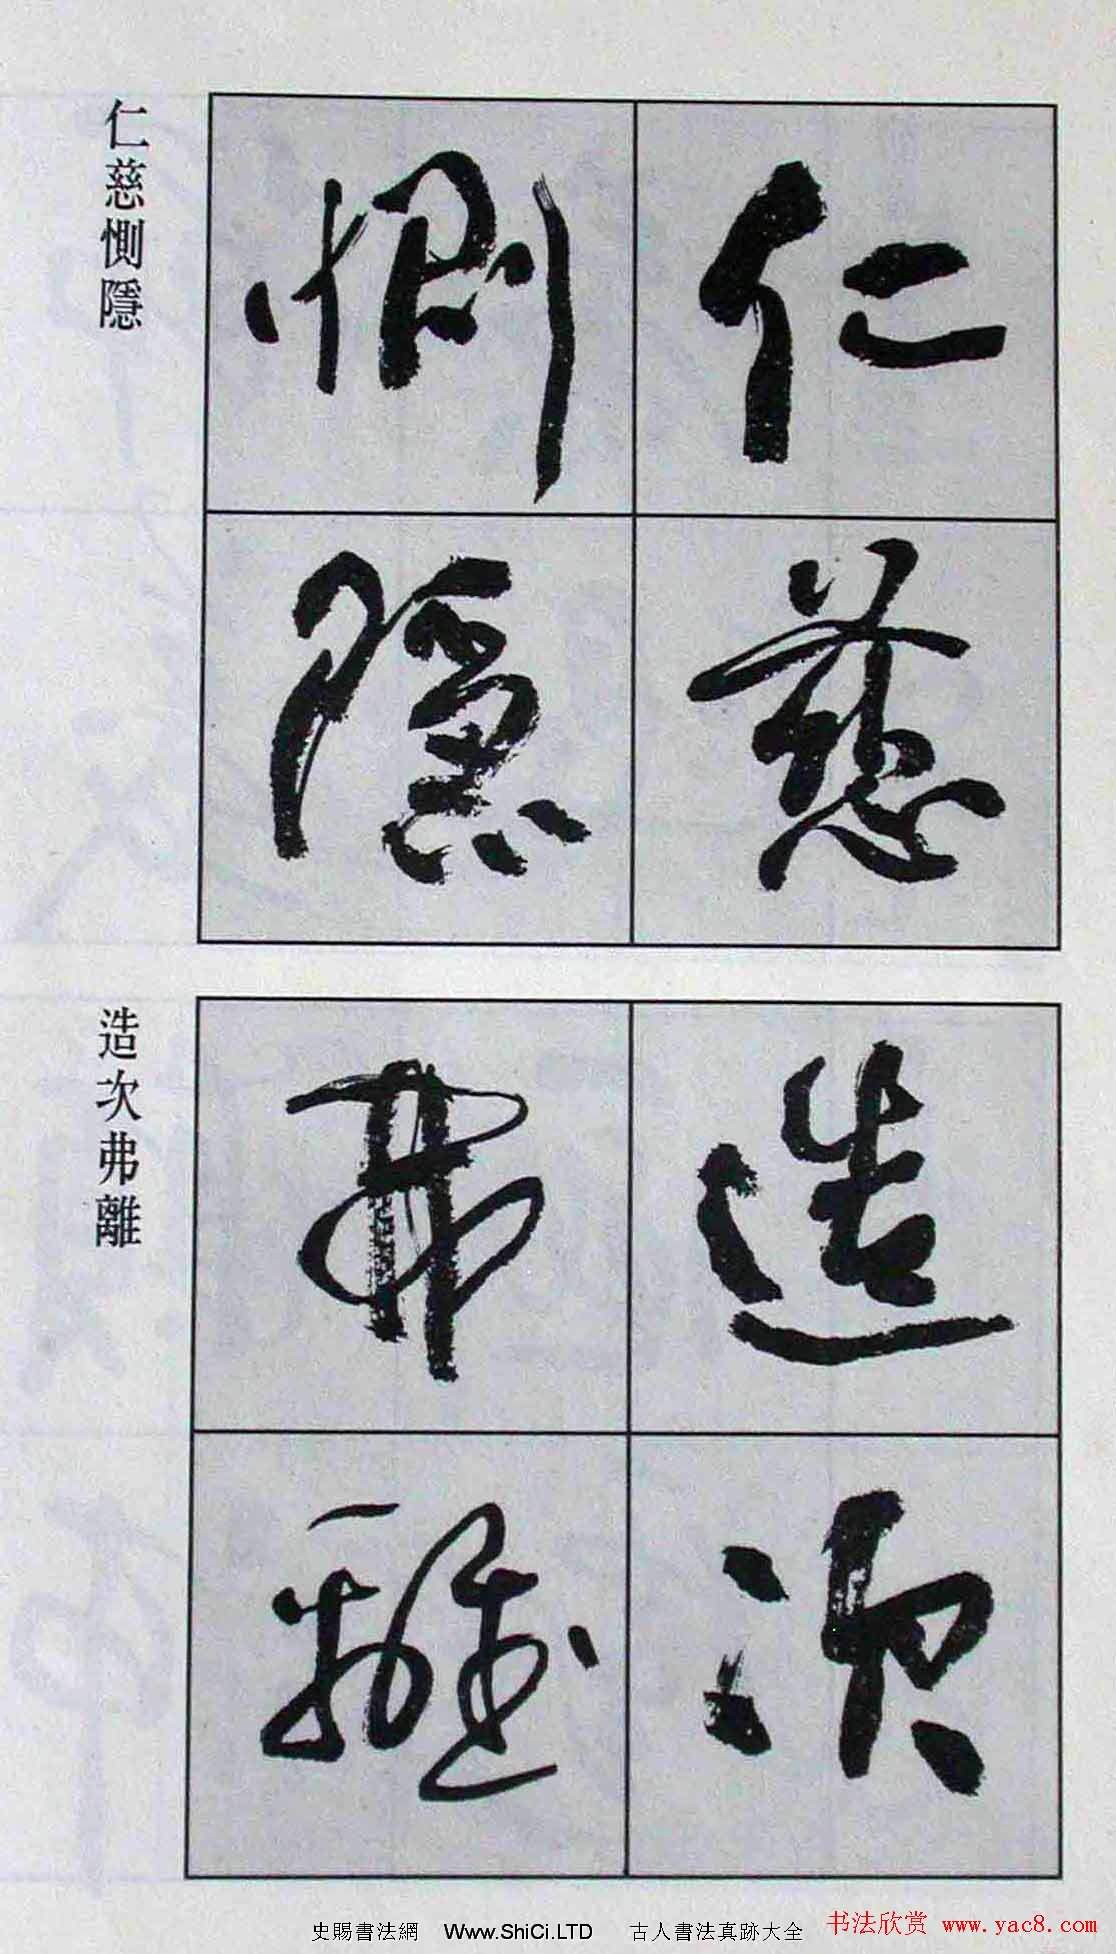 仁慈
惻隱
仁慈惻隱
造次
弗離
造次弗離
史賜書法網 Www.ShiCi.LTD 古人書法真跡大全
书法欣赏 www.yac8.com